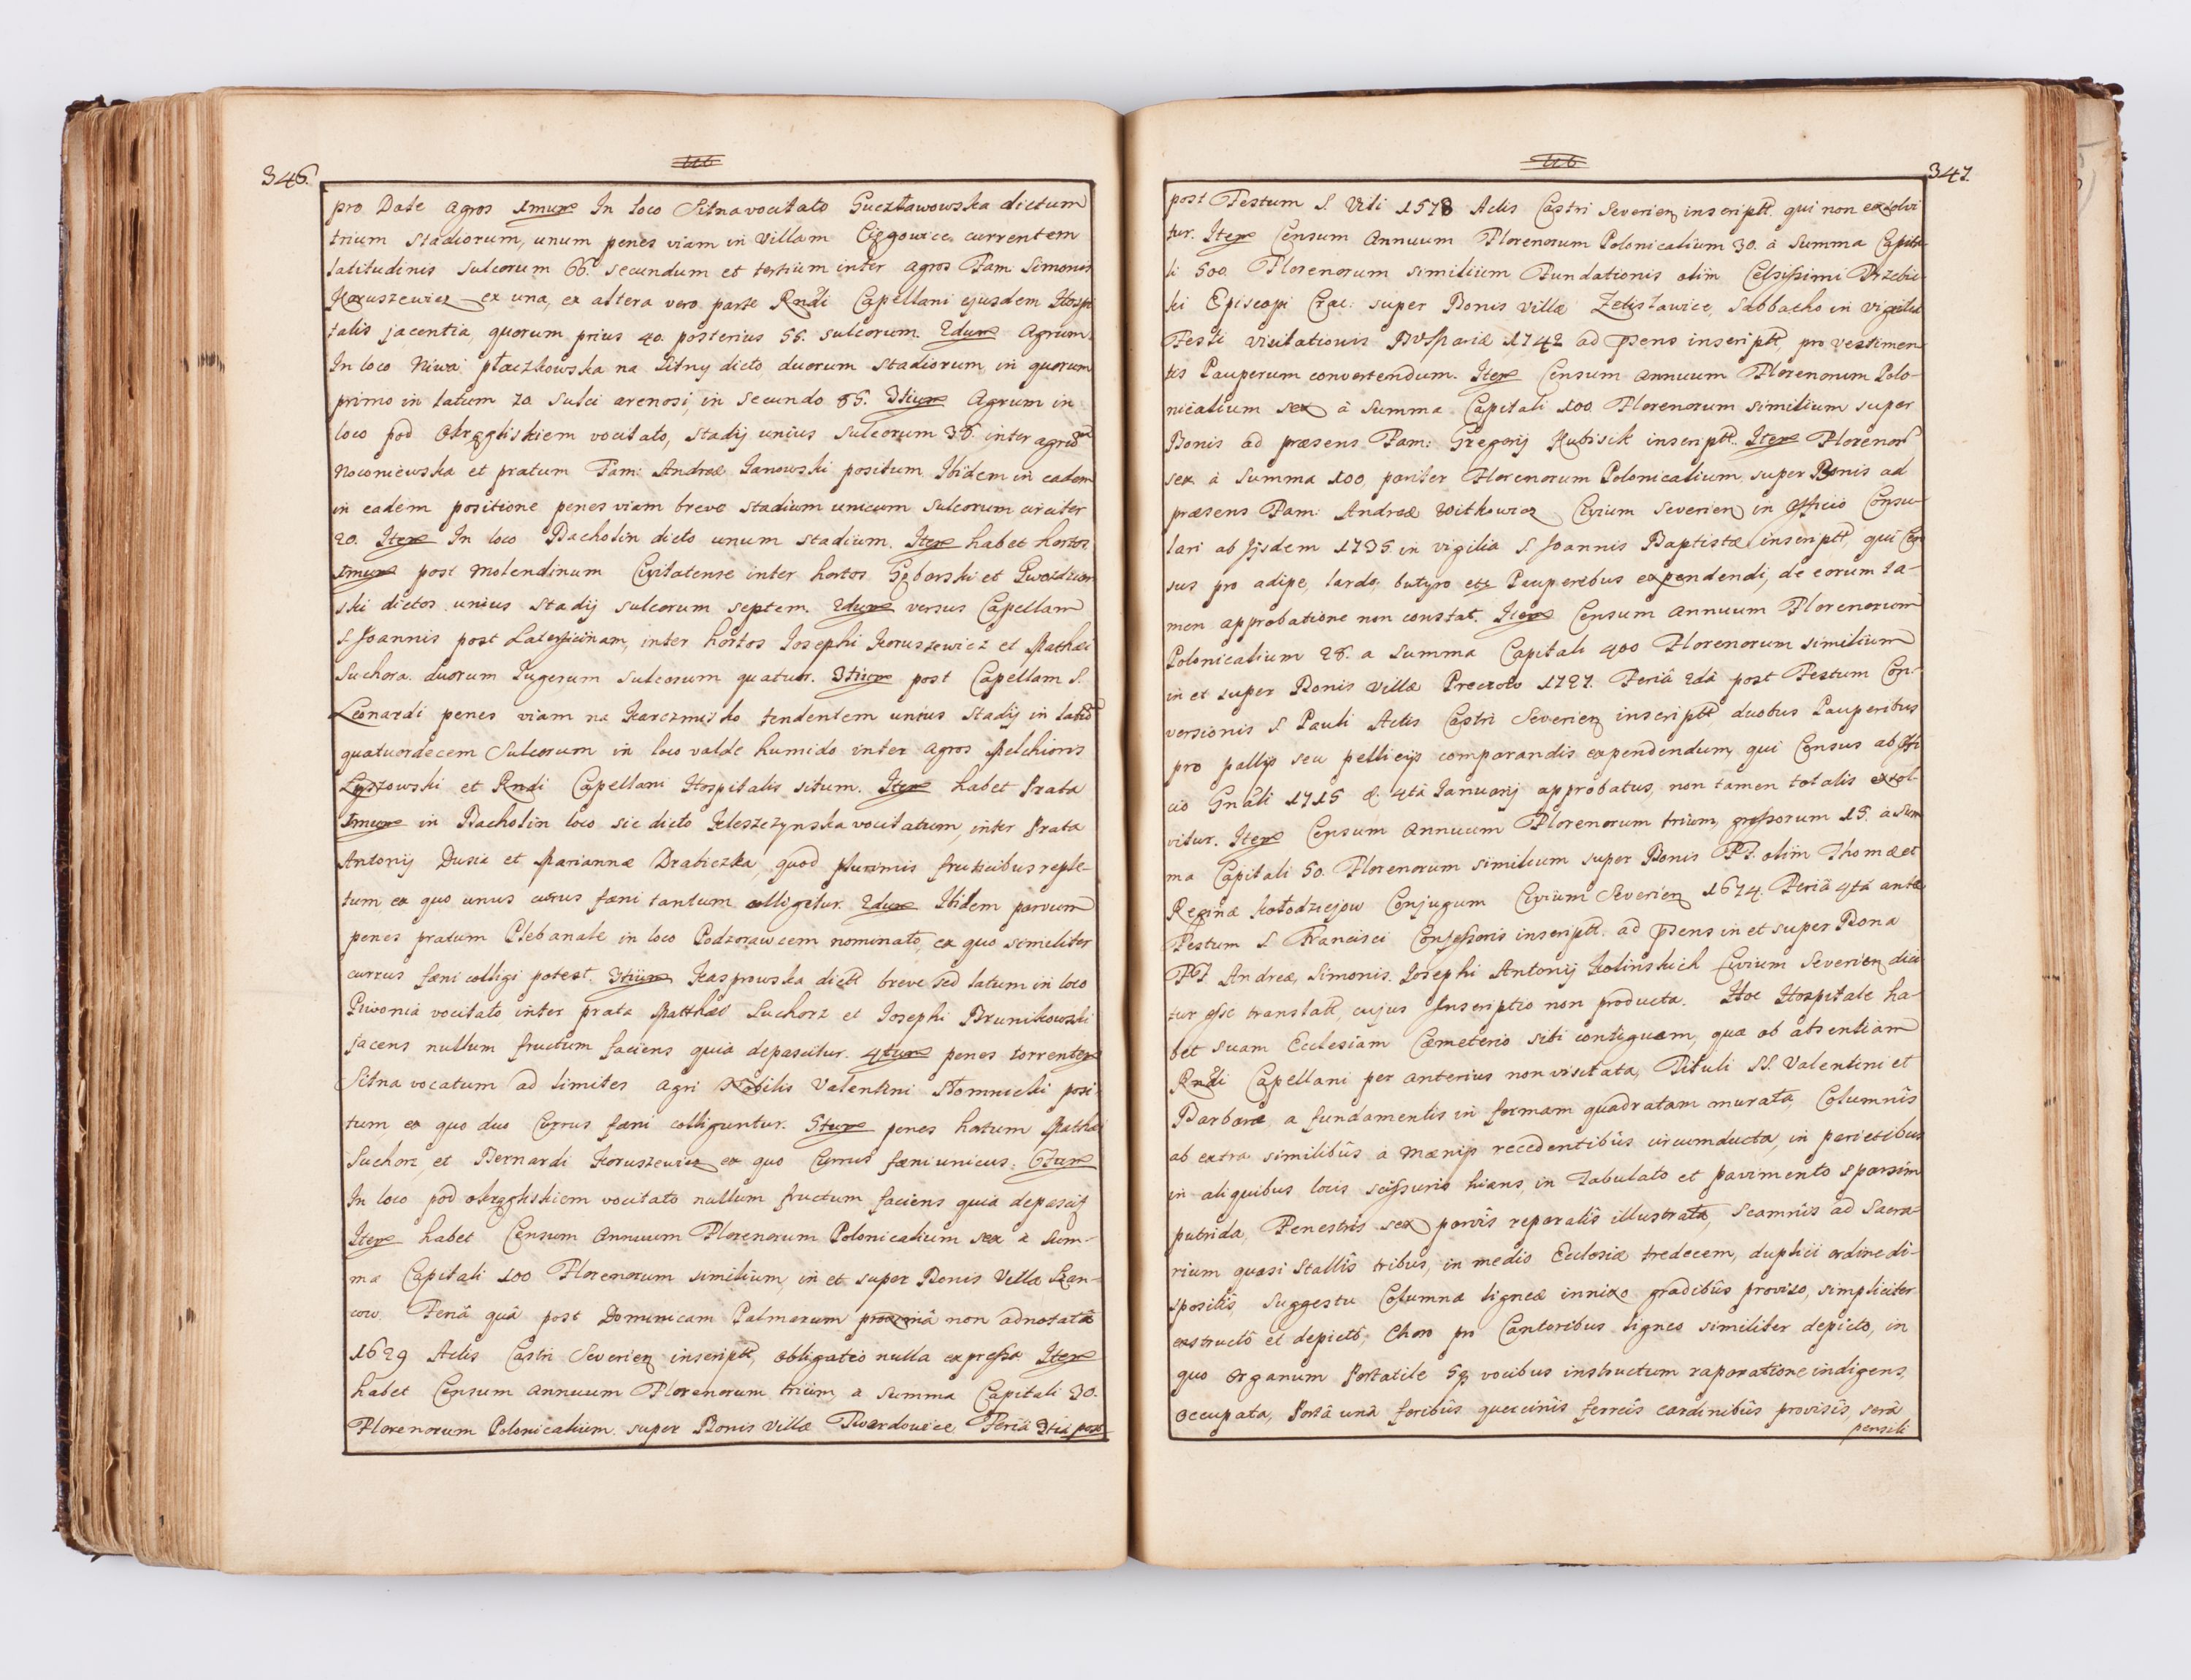 346.
pro Dote agros 1mum In loco Sitna vocitato Guczławowska dictum
trium stadiorum, unum penes viam in Villam currentem
latitudinis sulcorum 66. secundum et tertium inter agros Fam: Simonis
Koruszewicz ex una, ex altera vero parte Rndi Capellani ejusdem Hospi
talis jacentia, quorum prius 40. posterius 55. sulcorum. 2dum Agrum
In loco Niwa płaczkowska na Sitny dicto, duorum stadiorum, in quorum
primo in latum 70. sulci arenosi, in secundo 85. 3tium Agrum in
loco pod Okrągliskiem vocitato, stadij unius sulcorum 38. inter agrum
Noconiewska et pratum Fam: Andreæ Janowski positum. Ibidem in eadem
in eadem positione penes viam breve stadium unicum sulcorum circiter
20. Item In loco Bacholin dicto unum stadium. Item habet hortos
1mum post Molendinum Civitatense inter hortos Gęborski et Gwozdzion
ski dictos unius stadij sulcorum septem. 2dum versus Capellam
S. Joannis post Laterficinam, inter hortos Josephi Koruszewicz et Mathæi
Suchora duorum Jugerum sulcorum quatuor. 3tium post Capellam S.
Leonardi penes viam na Karczmisko tendentem unius stadij in latum
quatuordecem Sulcorum in loco valde humido inter agros Melchioris
Łyszowski et Rndi Capellani Hospitalis situm. Item habet Prata
1mum in Bacholin loco sic dicto Kleszczynska vocitatum, inter Prata
Antonij Dusia et Mariannæ Drabiczka, quod plurimis fructicibus reple-
tum, ex quo unus currus fæni tantum colligitur. 2dum Ibidem parvum
penes pratum Plebanale in loco Podzorawcem nominato, ex quo similiter
currus fæni colligi potest. 3tium Kasprowska dictt breve sed latum in loco
Piwonia vocitato inter prata Matthæi Suchorz et Josephi Brunikowski
jacens nullum fructum faciens quia depascitur. 4tum penes torrentem
Sitna vocatum ad limites agri Nobilis Valentini Słomnicki posi-
tum, ex quo duo Currus fæni colliguntur. 5tum penes hortum Mathæi
Suchorz, et Bernardi Koruszewicz ex quo Currus fæni unicus. 6tum
In loco pod okrągliskiem vocitato nullum fructum faciens quia depascitr
Item habet Censum Annuum Florenorum Polonicalium sex à Sum-
ma Capitali 100 Florenorum similium, in et super Bonis Villæ
Feriâ quâ post Dominicam Palmarum proximâ non adnotatâ
1629 Actis Castri Severien inscriptt, obligatio nulla expressa Item
habet Censum annuum Florenorum trium, a summa Capitali 30.
Florenorum Polonicalium super Bonis Villæ Twardowice Feriâ 3tiâ post
347.
post Festum S. Viti 1578 Actis Castri Severien inscriptt. qui non exsolvi
tur. Item Censum Annuum Florenorum Polonicalium 30. à Summa Capita
li 500. Florenorum similium Fundationis olim Celsissimi Trzebic
ki Episcopi Crac: super Bonis Villæ Zelisławice, Sabbatho in vigilia
Festi visitationis BVMariæ 1742 ad præsens inscriptt, pro vestimen
tis Pauperum convertendum. Item Censum annuum Florenorum Polo-
nicalium sex à Summa Capitali 100. Florenorum similium super
Bonis ad præsens Fam: Gregorij Kubisik inscriptt. Item Florenor
sex à Summa 100. pariter Florenorum Polonicalium super Bonis ad
præsens Fam: Andreæ Witkowicz Civium Severien in Officio Consu-
lari ab Ijsdem 1735. in vigilia S. Joannis Baptistæ inscriptt, qui Cen
sus pro adipe, lardo, butyro etc Pauperibus expendendi, de eorum ta-
men approbatione non constat. Item Censum annuum Florenorum
Polonicalium 28. a Summa Capitali 400 Florenorum similium
in et super Bonis Villæ Preczow 1727. Feriâ 2dâ post Festum Con-
versionis S. Pauli Actis Castri Severien inscriptt duobus Pauperibus
pro pallijs seu pellicijs comparandis expendendum, qui Census ab Offi
cio Gnâli 1715 d. 4tâ Januarij approbatus, non tamen totalis exsol-
vitur. Item Censum annuum Florenorum trium, grossorum 15. à Sum
ma Capitali 50. Florenorum similium super Bonis FF. olim Thomæ et
Reginæ Kołodziejow Conjugum Civium Severien 1674. Feriâ 4tâ ante
Festum S. Francisci Confessoris inscriptt. ad præsens in et super Bona
FF. Andreæ, Simonis, Josephi Antonij Kolinskich Civium Severien dici
tur esse translatt, cujus Inscriptio non producta. Hoc Hospitale ha-
bet suam Ecclesiam Cæmeterio sibi contiguam, quæ ob absentiam
Rndi Capellani per anterius non visitata, Tituli SS. Valentini et
Barbaræ a fundamentis in formam quadratam murata, Columnis
ab extra similibûs à mænijs recedentibûs circumducta, in parietibus
in aliquibus locis scissuris hians, in Tabulato et pavimento sparsim
putrida, Fenestrîs sex parvîs reparatîs illustrata, Scamnîs ad Sacra-
rium quasi Stallîs tribus, in medio Ecclesiæ tredecem, duplici ordine di-
spositîs, Suggestu Columnæ ligneæ innixo gradibûs proviso, simpliciter
exstructô et depictô, Choro pro Cantoribus ligneo similiter depicto, in
quo organum Portatile 5q vocibus instructum raparatione indigens
occupata, Portâ unâ foribûs quercinîs ferreîs cardinibûs provisîs, serâ
pensili